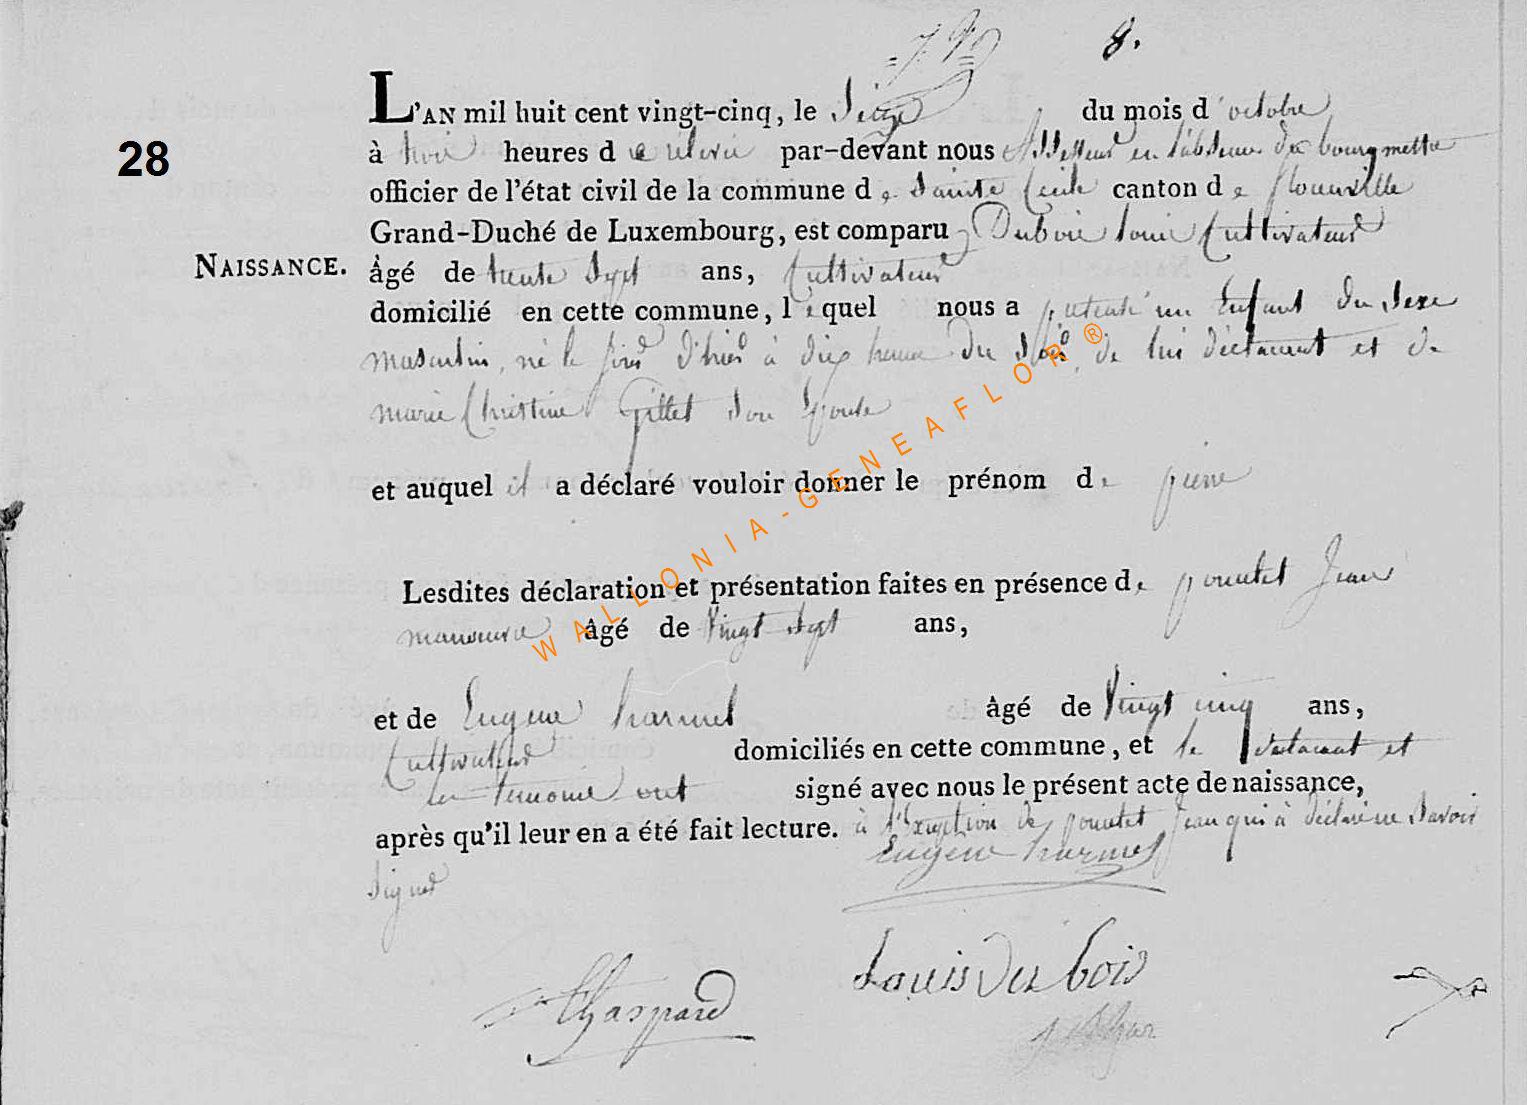 8.
28
L'AN mil huit cent vingt-cinq, le Seize du mois d'octobre
à trois heures de relevée par-devant nous Assesseur en l'absence du bourgmettre
officier de l'état civil de la commune de Sainte Cecile canton de florenville
Grand-Duché de Luxembourg, est comparu Dubois louis Cultivateur
NAISSANCE. âgé de trente Sept ans, Cultivateur
domicilié en cette commune, lequel nous a présenté un Enfant du Sexe
masculin, né le jour d'hier à dix heures du Soir, de lui déclarant et de
marie Christine Gillet Son Epouse
et auquel il a déclaré vouloir donner le prénom de pierre
Lesdites déclaration et présentation faites en présence de poncelet Jean
manoeuvre âgé de Vingt Sept ans,
et de Eugene harmel âgé de Vingt cinq ans,
Cultivateur domiciliés en cette commune, et le declarant et
les temoins ont signé avec nous le présent acte de naissance,
après qu'il leur en a été fait lecture. à l'Exception de poncelet Jean qui à déclaré ne Savoir
Signer
Eugene harmel
Louis Dubois
Chaspard
WALLONIA-GENEAFLOR®